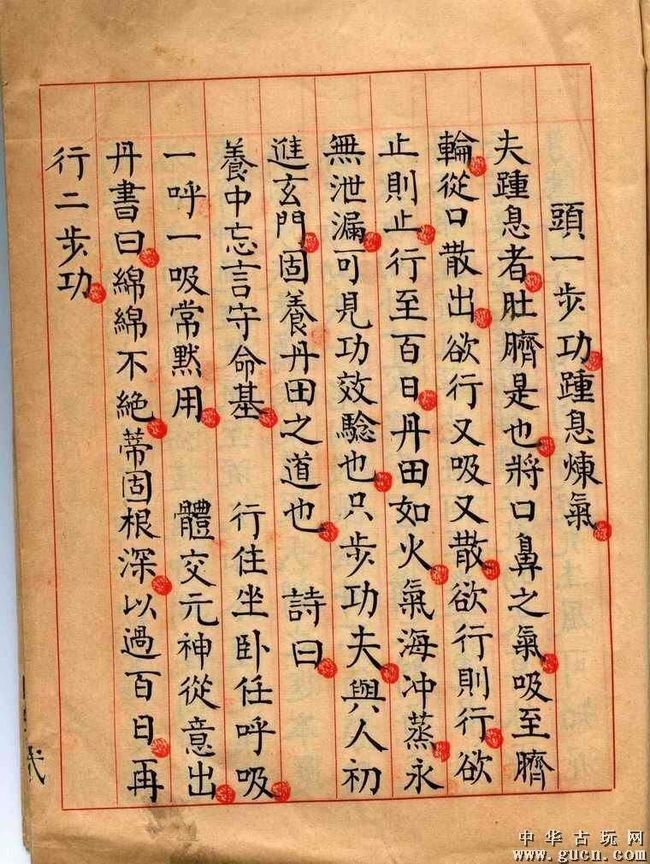 頭一步功踵息煉氣
夫踵息者肚臍是也將口鼻之氣吸至臍
輪從口散出欲行又吸又散欲行則行欲
止則止行至百日丹田如火氣海冲蒸永
無泄漏可見功效驗也只步功夫與人初
進玄門固養丹田之道也 詩曰
養中忘言守命基 行住坐卧任呼吸
一呼一吸常默用 體交元神從意出
丹書曰綿綿不絶蒂固根深以過百日再
行二步功
中华古玩网
www.gucn.com